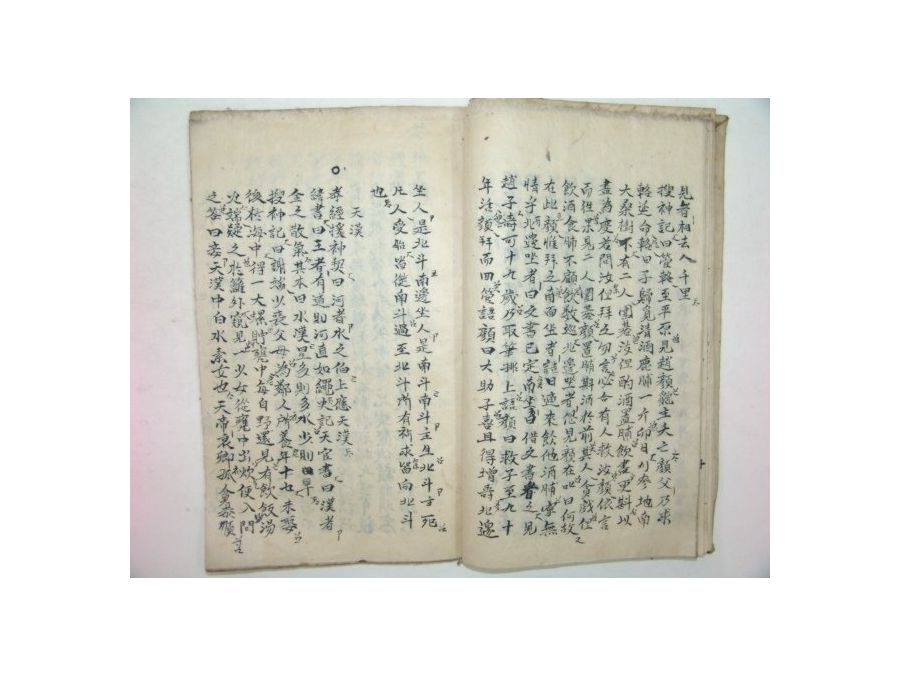 見者相去八千里
搜神記曰管輅至平原見趙顏
輅延命輅曰子歸覓清酒鹿脯一斤卯日刈麥地南
大桑樹下有二人圍碁汝但酌酒置脯飲盡更斟以
盡為度若問汝但拜之勿言必合有人救汝顏依言
而往果見二人圍碁顏置脯斟酒於前其人貪戲但
飲酒食脯不顧飲數巡北邊坐者忽見顏在叱曰何故
在此顏惟拜之南面坐者語曰適來飲他酒脯寧無
情乎北邊坐者曰文書已定南坐者曰借文書看之見
趙子壽可十九歲乃取筆挑上語顏曰救子至九十
年活顏拜而回管語顏曰大助子喜且得增壽北邊
坐人是北斗南邊坐人是南斗南斗主生北斗主死
凡人受胎皆從南斗過至北斗所有祈求皆向北斗
也
天漢
孝經援神契曰河者水之伯上應天漢
緯書曰王者有道則河直如繩史記天官書曰漢者
金之散氣其本曰水漢星多則多水少則旱
搜神記曰謝端少喪父母為鄰人所養年十七未娶
後於海中得一大螺貯甕中每自野還見有飲飯湯
火端疑之於籬外窺見一少女從甕中出炊便入門
之答曰妾天漢中白水素女也天帝哀卿孤